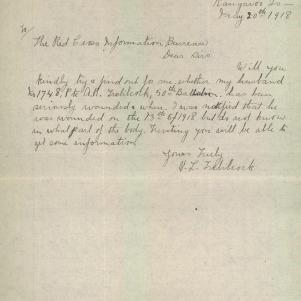 Kangaroo Is—
May 20th 1918
To
The Red Cross Information Bureau
Dear Sirs
Will you
kindly try & find out for me whether my husband
1748, Pte A.H. Trebilcock, 50th Battalion has been
seriously wounded & when. I was notified that he
was wounded on the 13th 5/1918 but does not know
in what part of the body. Trusting you will be able to
get some information
Yours Truly
H. L. Trebilcock